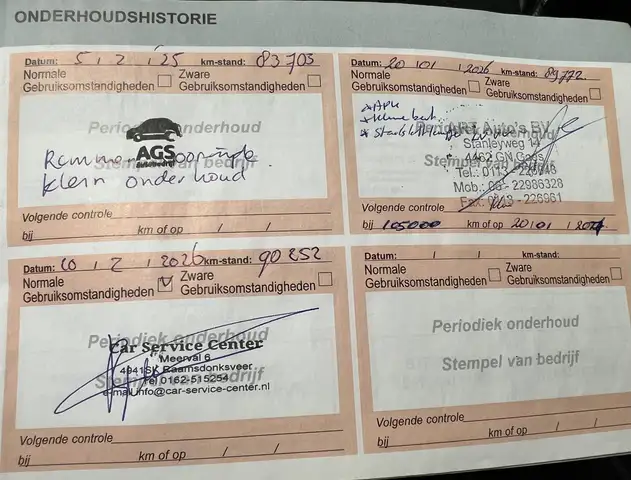 ONDERHOUDSHISTORIE
Datum: 5 / 2 / '25 km-stand: 83703
Normale Gebruiksomstandigheden
Zware Gebruiksomstandigheden
Periodiek onderhoud
AGS
Stempel van bedrijf
Remmen
klein onderhoud
Volgende controle
bij km of op / /
Datum: 20 / 01 / 2026 km-stand: 89772
Normale Gebruiksomstandigheden
Zware Gebruiksomstandigheden
* APK
* kleine beurt
Periodiek onderhoud
Auto's BV
Stanleyweg 14
4462 GN Goes
Stempel van bedrijf
Tel.: 0113 -
Mob.: 06 - 22986328
Fax: 0113 - 226961
Volgende controle
bij 105000 km of op 20/01 /
Datum: 10 / 2 / 2026 km-stand: 90252
Normale Gebruiksomstandigheden
Zware Gebruiksomstandigheden
Periodiek onderhoud
Car Service Center
Meerval 6
4941SK Raamsdonksveer
Stempel van bedrijf
Tel 0162-515254
e-mail info@car-service-center.nl
Volgende controle
bij km of op / /
Datum: / / km-stand:
Normale Gebruiksomstandigheden
Zware Gebruiksomstandigheden
Periodiek onderhoud
Stempel van bedrijf
Volgende controle
bij km of op / /